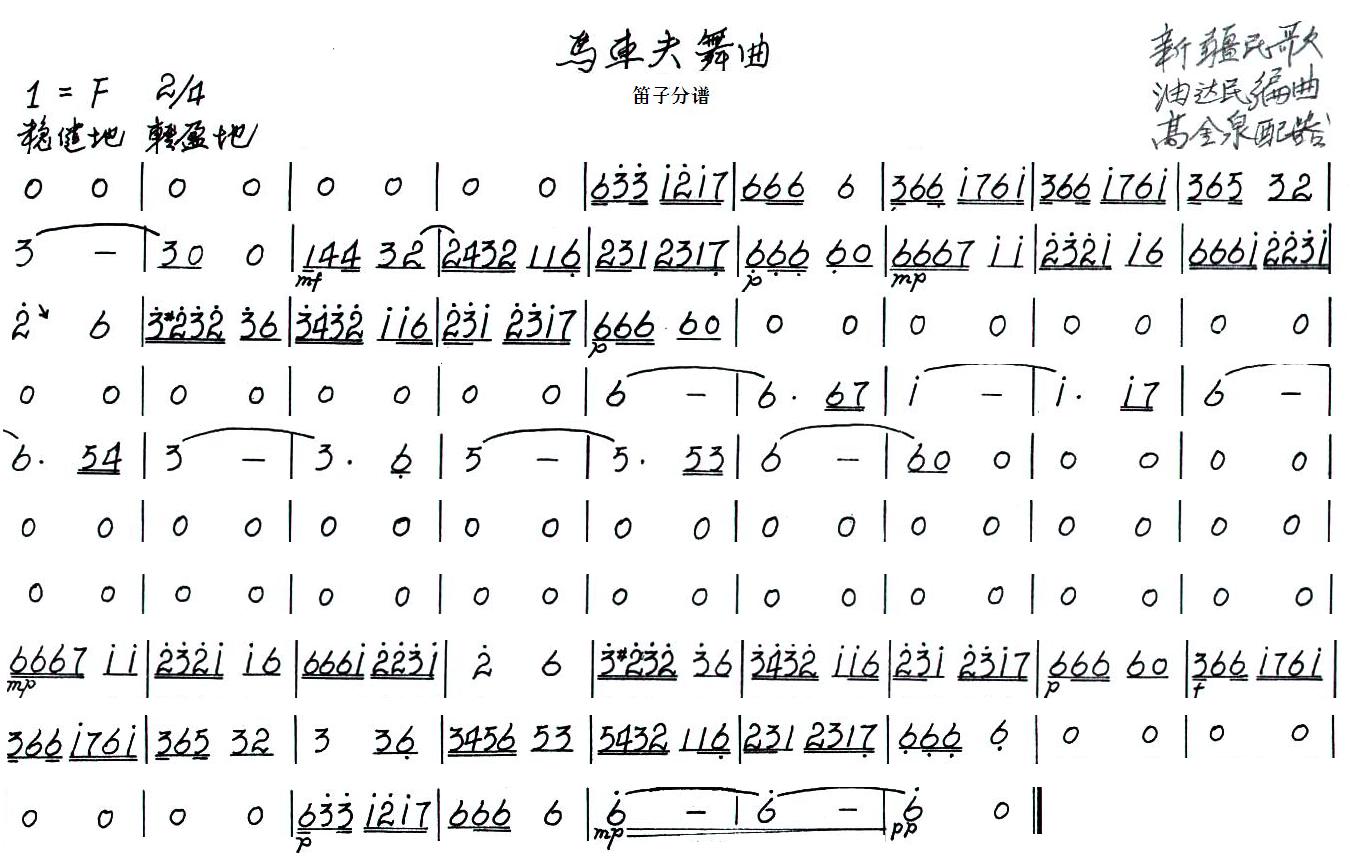 馬車夫舞曲
笛子分谱
新疆民歌
油达民编曲
高金泉配器
1 = F 2/4
稳健地 轻盈地
0 0 | 0 0 | 0 0 | 0 0 | 63̇3̇ i2̇i7 | 666 6 | 366 i76i | 366 i76i | 365 32 |
3 — | 30 0 | 144 32 | 2432 116̣ | 231 2317̣ | 6̣6̣6̣ 6̣0 | 6667 ii | 2̇3̇2̇i i6 | 666i 2̇2̇3̇i |
mf p mp
2̇↘ 6 | 3̇#2̇3̇2̇ 3̇6 | 3̇4̇3̇2̇ ii6 | 2̇3̇i 2̇3̇i7 | 666 60 | 0 0 | 0 0 | 0 0 | 0 0 |
p
0 0 | 0 0 | 0 0 | 0 0 | 6 — | 6· 67 | i — | i· i7 | 6 — |
6· 54 | 3 — | 3· 6̣ | 5 — | 5· 53 | 6 — | 60 0 | 0 0 | 0 0 |
0 0 | 0 0 | 0 0 | 0 0 | 0 0 | 0 0 | 0 0 | 0 0 | 0 0 |
0 0 | 0 0 | 0 0 | 0 0 | 0 0 | 0 0 | 0 0 | 0 0 | 0 0 |
6667 ii | 2̇3̇2̇i i6 | 666i 2̇2̇3̇i | 2̇ 6 | 3̇#2̇3̇2̇ 3̇6 | 3̇4̇3̇2̇ ii6 | 2̇3̇i 2̇3̇i7 | 666 60 | 366 i76i |
mp p
366 i76i | 365 32 | 3 36̣ | 3456 53 | 5432 116̣ | 231 2317̣ | 6̣6̣6̣ 6̣ | 0 0 | 0 0 |
0 0 | 0 0 | 63̇3̇ i2̇i7 | 666 6 | 6̇ — | 6̇ — | 6̇ 0 ‖
p mp pp